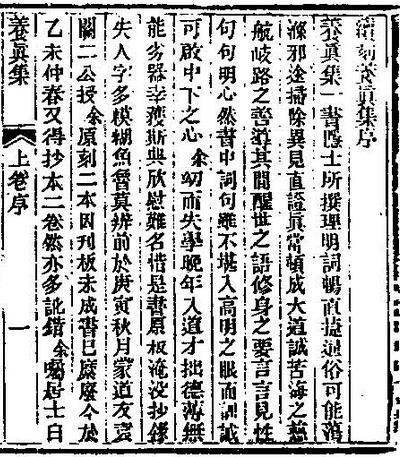 續刻養真集序
養真集一書隱士所撰理明詞暢直捷通俗可能蕩
滌邪途掃除異見直證真常頓成大道誠苦海之慈
航歧路之善導其間醒世之語修身之要言言見性
句句明心然書中詞句雖不堪入高明之眼而訓誡
可啟中下之心余幼而失學晚年入道才拙德薄無
能劣器幸獲斯與欣慰難名惜是書原板淹沒抄錄
失人字多模糊魚魯莫辨前於庚寅秋月蒙道友袁
關二公授余原刻二本因刊板未成書已麼麼今於
乙未仲春又得抄本二卷然亦多訛錯余囑居士白
養真集
上卷序
一